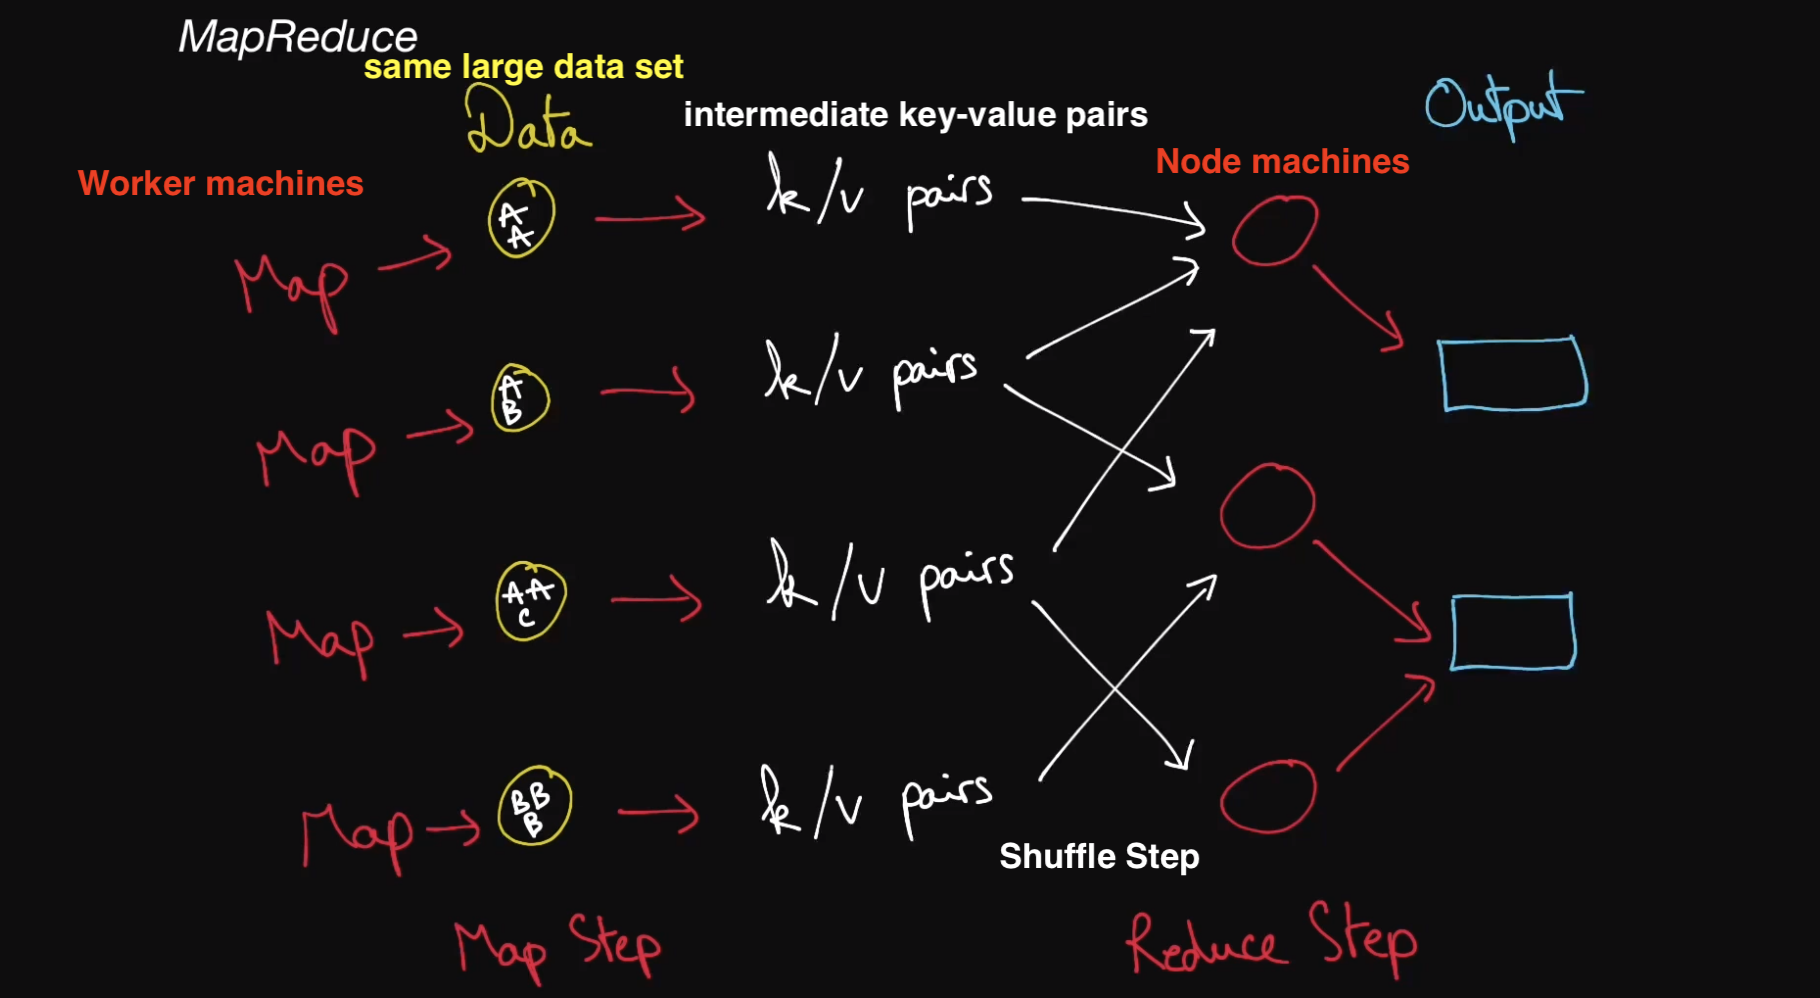 MapReduce
same large data set
Data
intermediate key-value pairs
Output
Worker machines
Node machines
Map
A
A
k/v pairs
Map
A
B
k/v pairs
Map
AA
C
k/v pairs
Map
BB
B
k/v pairs
Shuffle Step
Map Step
Reduce Step